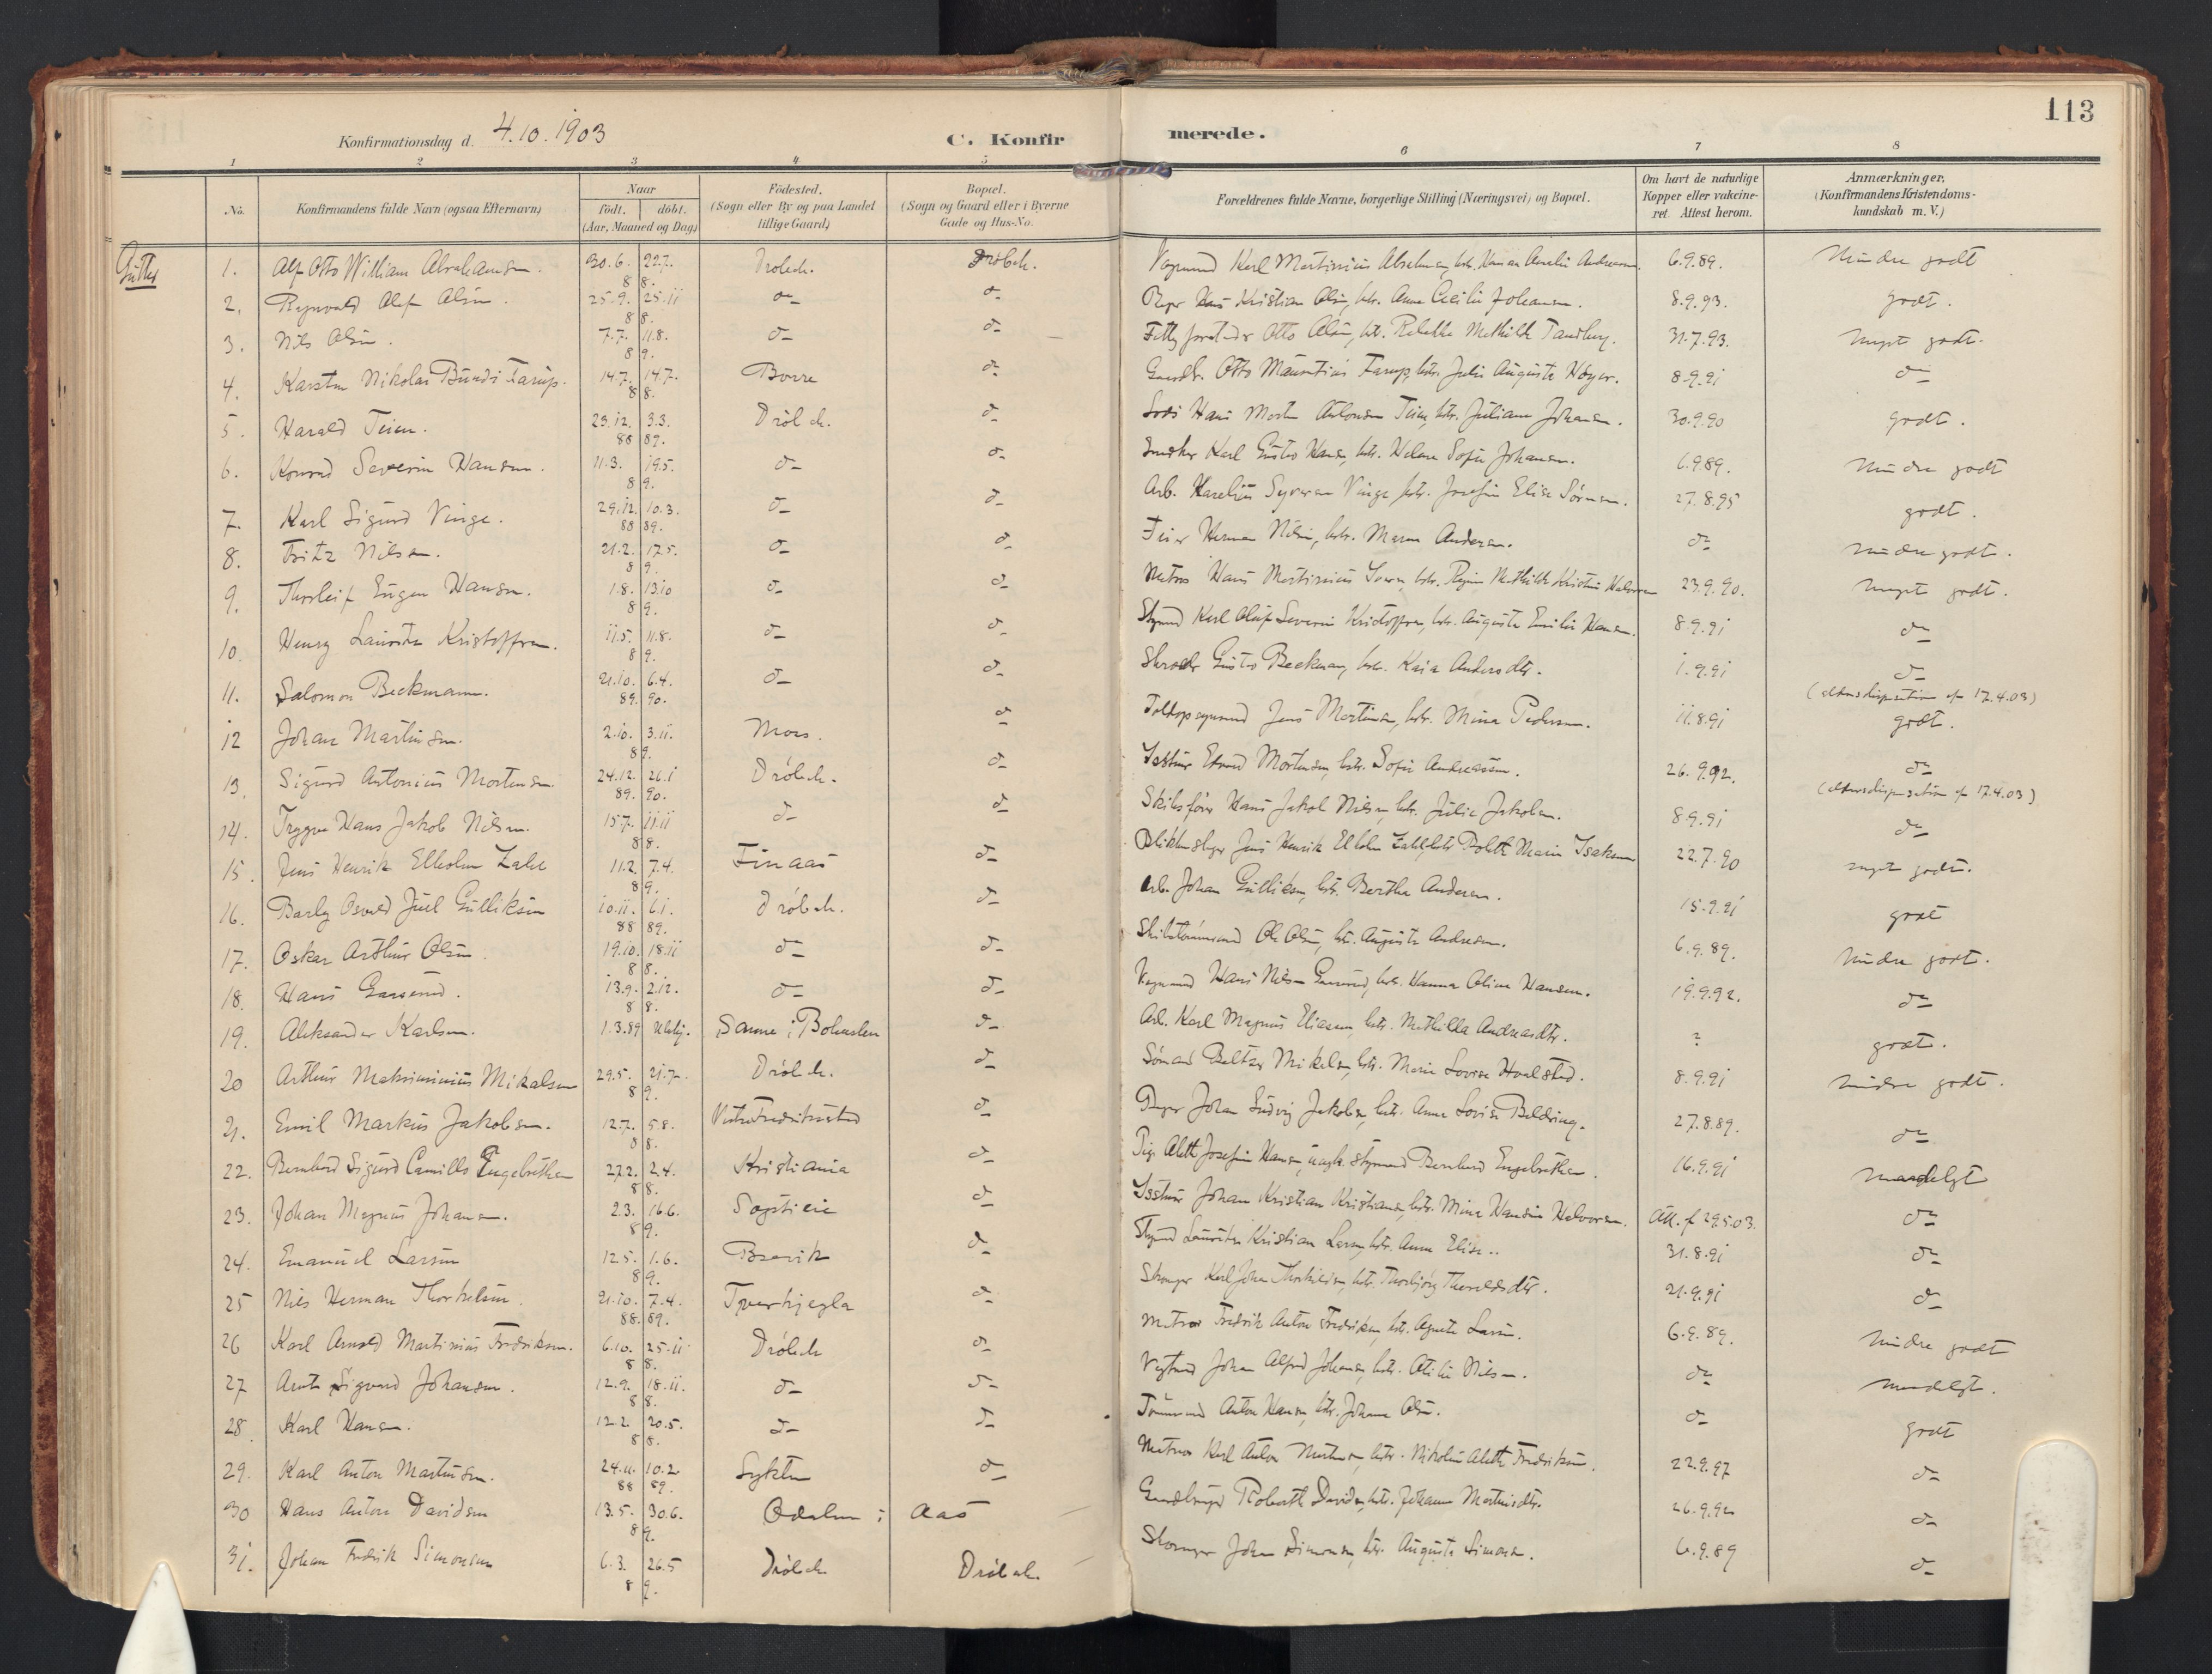 113
Konfirmationsdag d. 4.10.1903
C. Konfirmerede.
1 2 3 4 5 6 7 8
No.
Konfirmandens fulde Navn (ogsaa Efternavn)
Naar
födt. döbt.
(Aar, Maaned og Dag)
Födested.
(Sogn eller By og paa Landet
tillige Gaard)
Bopæl.
(Sogn og Gaard eller i Byerne
Gade og Hus-No.
Forældrenes fulde Navne, borgerlige Stilling (Næringsvei) og Bopæl.
Om havt de naturlige
Kopper eller vakcine-
ret. Attest herom.
Anmærkninger.
(Konfirmandens Kristendoms-
kundskab m. V.)
Gutter
1. Alf Otto William Abrahamsen. 30.6. 88. 22.7. Dröbak. Dröbak. Karl Martinius Abrahamsen, 6.9.89. Mindre godt
2. Ragnvald Olaf Olsen. 25.9. 25.11 88. do do Kristian Olsen, htr. Anne Cecilie Johansen. 8.9.93. godt.
3. Nils Olsen. 7.7. 11.8. 89. do do Otto Olsen, htr. Mathilde Tandberg. 31.7.93. meget godt.
4. Karsten Nikolai Farup. 14.7. 14.7. 88. Borre do Gaardbr. Otto Mauritius Farup, htr. Julie Auguste Höyer. 8.9.91 do
5. Harald Teien. 29.12. 88 3.3. 89. Dröbak. do Lods Hans Morten Antonsen Teien, htr. Juliane Johansen. 30.9.90 godt.
6. Konrad Severin Hansen. 11.3. 19.5. 89. do do Snedker Karl Gustav Hansen, htr. Helene Sofie Johansen. 6.9.89. Mindre godt
7. Karl Sigurd Vinge. 29.12. 88 10.3. 89. do do Arb. Karelius Syversen Vinge, htr. Josefine Elise Sörensen. 27.8.95 godt.
8. Fritz Nilsen. 21.2. 17.5. 89. do do Feier Herman Nilsen, htr. Maren Andersen. do mindre godt.
9. Thorleif Eugen Hansen. 1.8. 13.10 89. do do Matros Hans Martinius htr. Mathilde Kristine Halvorsen 23.9.90. meget godt.
10. Henry Lauritz Kristoffersen. 11.5. 11.8. 89. do do Styrmd Karl Oluf Severin Kristoffersen, htr. Auguste Emilie Hansen. 8.9.91 do
11. Salomon Beckmann. 21.10. 89. 6.4. 90. do do Gustav Beckman, htr. Kaia Andersdtr. 1.9.91 do
(aldersdispensation af 17.4.03)
12 Johan Martinsen. 2.10. 3.11. 89. Moss. do Jens Martinsen, htr. Mina Pedersen. 11.8.91 godt.
13. Sigurd Antonius Mortensen 24.12. 89. 26.1 90. Dröbak. do Edvard Mortensen, htr. Sofie Andreassen. 26.9.92. do
(aldersdispensation af 17.4.03)
14. Trygve Hans Jakob Nilsen. 15.7. 11.11 88. do do Skibsförer Hans Jakob Nilsen, htr. Julie Jakobsen. 8.9.91 do
15. Jens Henrik Elholm Zahl 11.2. 7.4. 89. Finaas do Blikkenslager Jens Henrik Elholm Zahl, htr. Marie Isaksen 22.7.90 meget godt.
16. Barly Osvald Juel Gulliksen 10.11. 88 6.1. 89. Dröbak. do Arb. Johan Gulliksen, htr. Berthe Andersen. 15.9.91 godt
17. Oskar Arthur Olsen. 19.10. 18.11 88. do do Skibstömmermd Ole Olsen, htr. Auguste Andresen. 6.9.89. Mindre godt.
18. Hans Gaaserud. 13.9. 2.12. 88. do do Hans Nilsen Gaaserud, htr. Hanna Oline Hansen. 19.9.92. do
19. Aleksander Karlsen. 1.3.89 Ulovlig. Sanne i Bohuslen do Arb. Karl Magnus Eliasen, htr. Mathilda Andreasdtr. ? godt.
20 Arthur Maksiminius Mikalsen 29.5. 21.7. 89. Dröbak. do Sömand Baltzer Mikalsen, htr. Marie Lovise Hvalsted. 8.9.91 mindre godt.
21. Emil Markus Jakobsen. 12.7. 5.8. 88. Vestre Fredrikstad do Johan Ludvig Jakobsen, htr. Anne Lovise Beldring. 27.8.89. do
22. Bernhard Sigurd Camillo Engebretsen 27.2. 2.4. 88. Kristiania do Pige Aleth Josefine Hansen, ungk. styrmand Bernhard Engebretsen. 16.9.91 maadelgt
23. Johan Magnus Johansen. 2.3. 16.6. 89. do Johan Kristian Kristiansen, htr. Mina Hansine Halvorsen. Att. f 29.5.03. do
24. Emanuel Larsen 12.5. 1.6. 89. Brevik do Styrmd Lauritz Kristian Larsen, htr. Anne Elise.. 31.8.91 do
25 Nils Herman Thorkelsen. 21.10. 88. 7.4. 89. Tverkjegla do Karl Johan Thorkelsen, htr. Thorbjörg Thorvaldsdtr. 21.9.91 do
26 Karl Arnold Martinius Fredriksen. 6.10. 25.11 88. Dröbak do Matros Fredrik Anton Fredriksen, htr. Agnete Larsen. 6.9.89. Mindre godt
27 Arnt Sigvard Johansen. 12.9. 18.11. 88. do do Johan Alfred Johansen, htr. Otilie Nilsen. do maadelgt.
28. Karl Hansen. 12.2. 20.5. 88. do do Tömmermd Anton Hansen, htr. Johanne Olsen. do godt
29. Karl Anton Martinsen. 24.11. 88 10.2. 89. do Matros Karl Anton Martinsen, htr. Nikoline Aleth Fredriksen. 22.9.97 do
30 Hans Anton Davidsen 13.5. 30.6. 89. Odalen i Aas Gaardbruger Robert Davidsen, htr. Johanne Martinsdtr. 26.9.92 do
31. Johan Fredrik Simonsen 6.3. 26.5 89. Dröbak Dröbak. Johan Simonsen, htr. Auguste Simonsen. 6.9.89 do